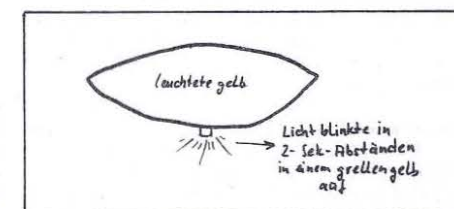 leuchtete gelb
Licht blinkte in
2-Sek-Abständen
in einem grellengelb
auf